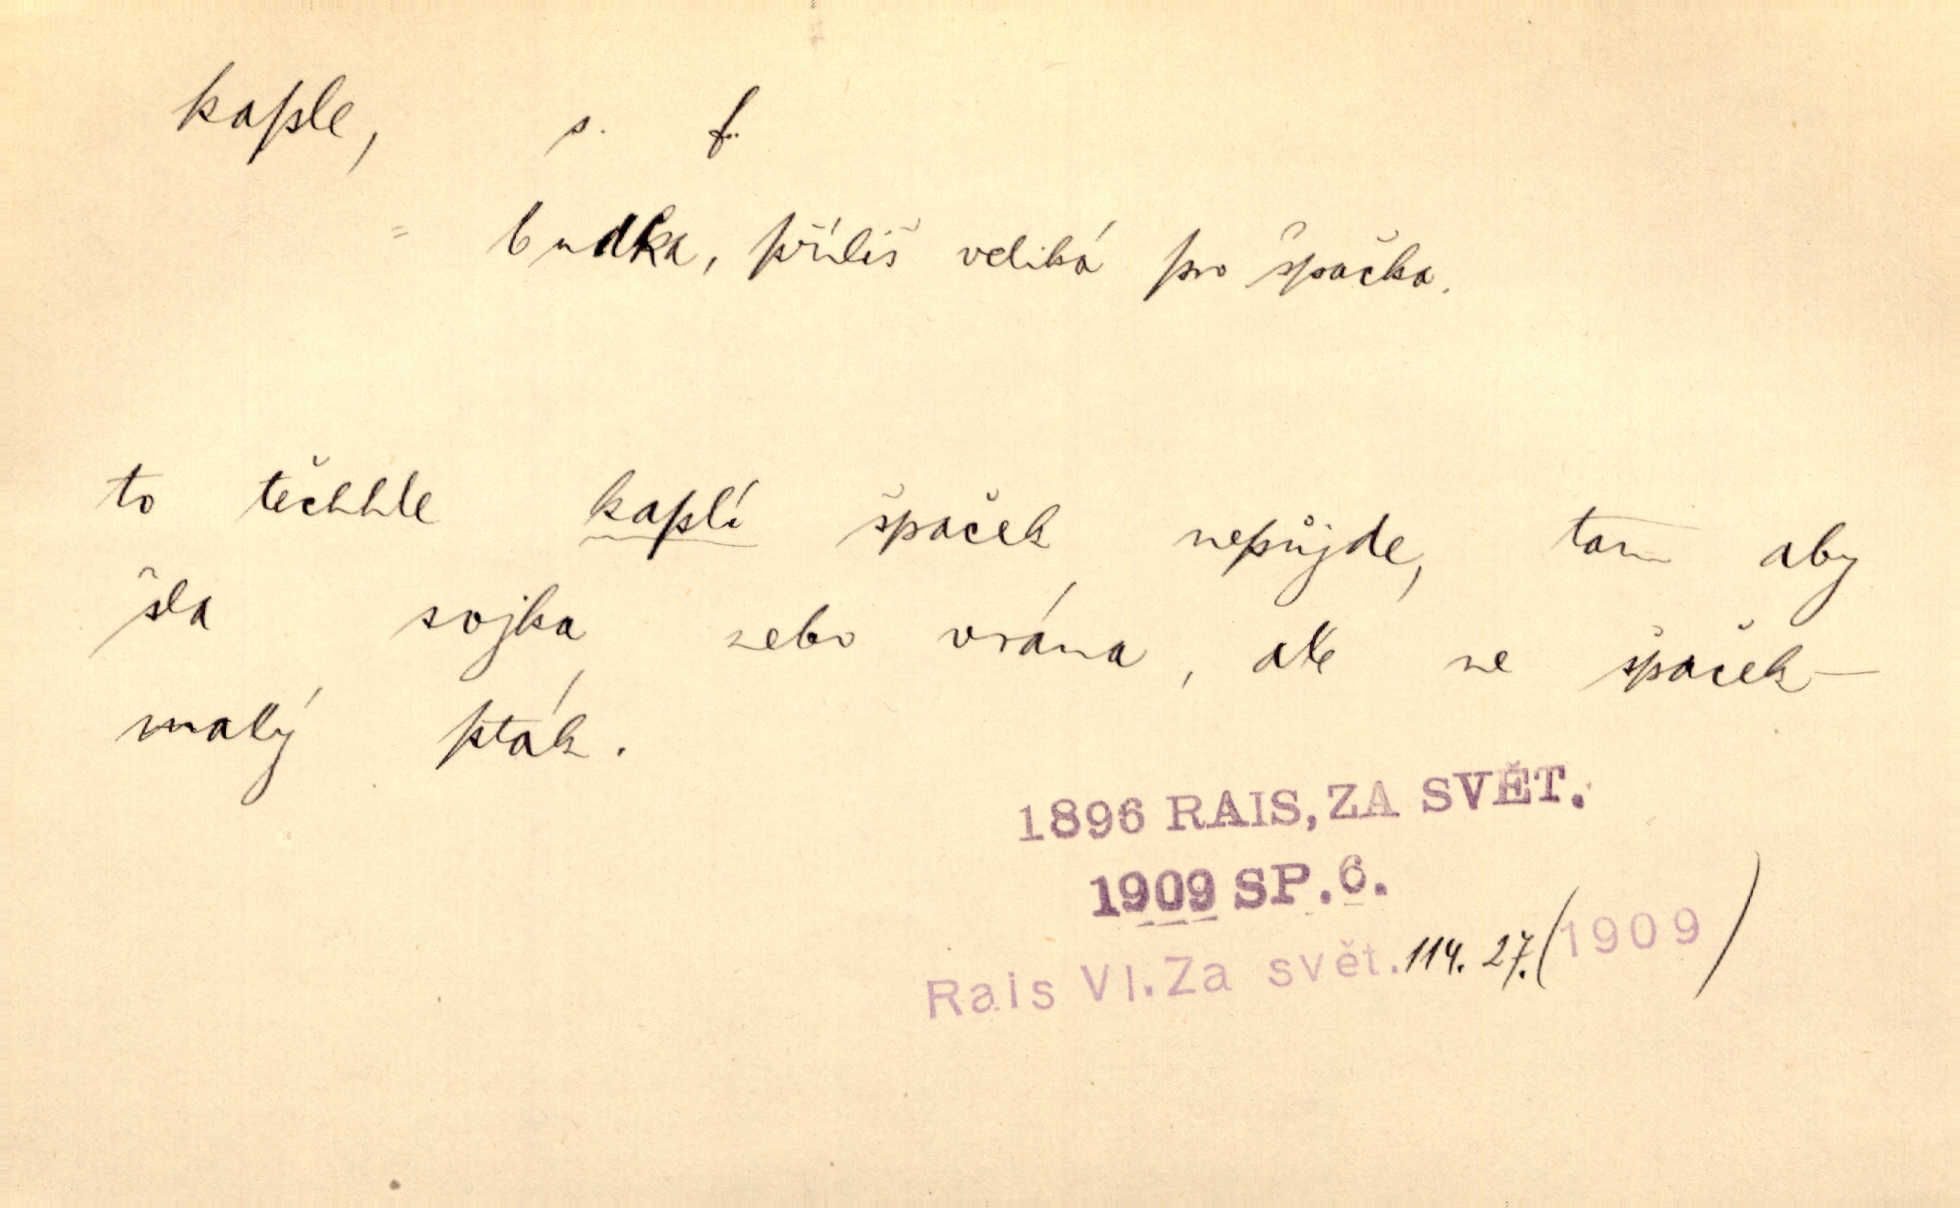 kaple, s. f.
= budka, příliš veliká pro špačka.
to těchhle kaplí špaček nepůjde, tam aby
šla sojka nebo vrána, ale ne špaček –
malý pták.
1896 RAIS, ZA SVĚT.
1909 SP. 6.
Rais VI. Za svět. 114. 27. (1909)